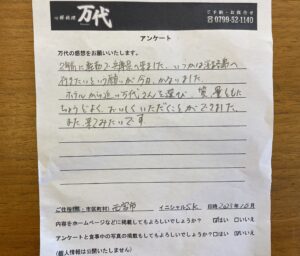 心粋旅鮨 万代
ご予約・お問合せ
☎0799-52-1140
アンケート
万代の感想をお願いいたします。
2年前に転勤で兵庫県に来ました。いつかは淡路島へ
行きたいという願いが今日、かないました
ホテルから近い万代さんを選び、質、量ともに
ちょうどよく、おいしくいただくことができました。
また来てみたいです
ご住所(県・市区町村) 西宮市 イニシャル S.K 日時 2023年10月
内容をホームページなどに掲載してもよろしいでしょうか? ☑はい □いいえ
アンケートと食事中の写真の掲載もしてもよろしいでしょうか?□はい □いいえ
(個人情報は公開いたしません)